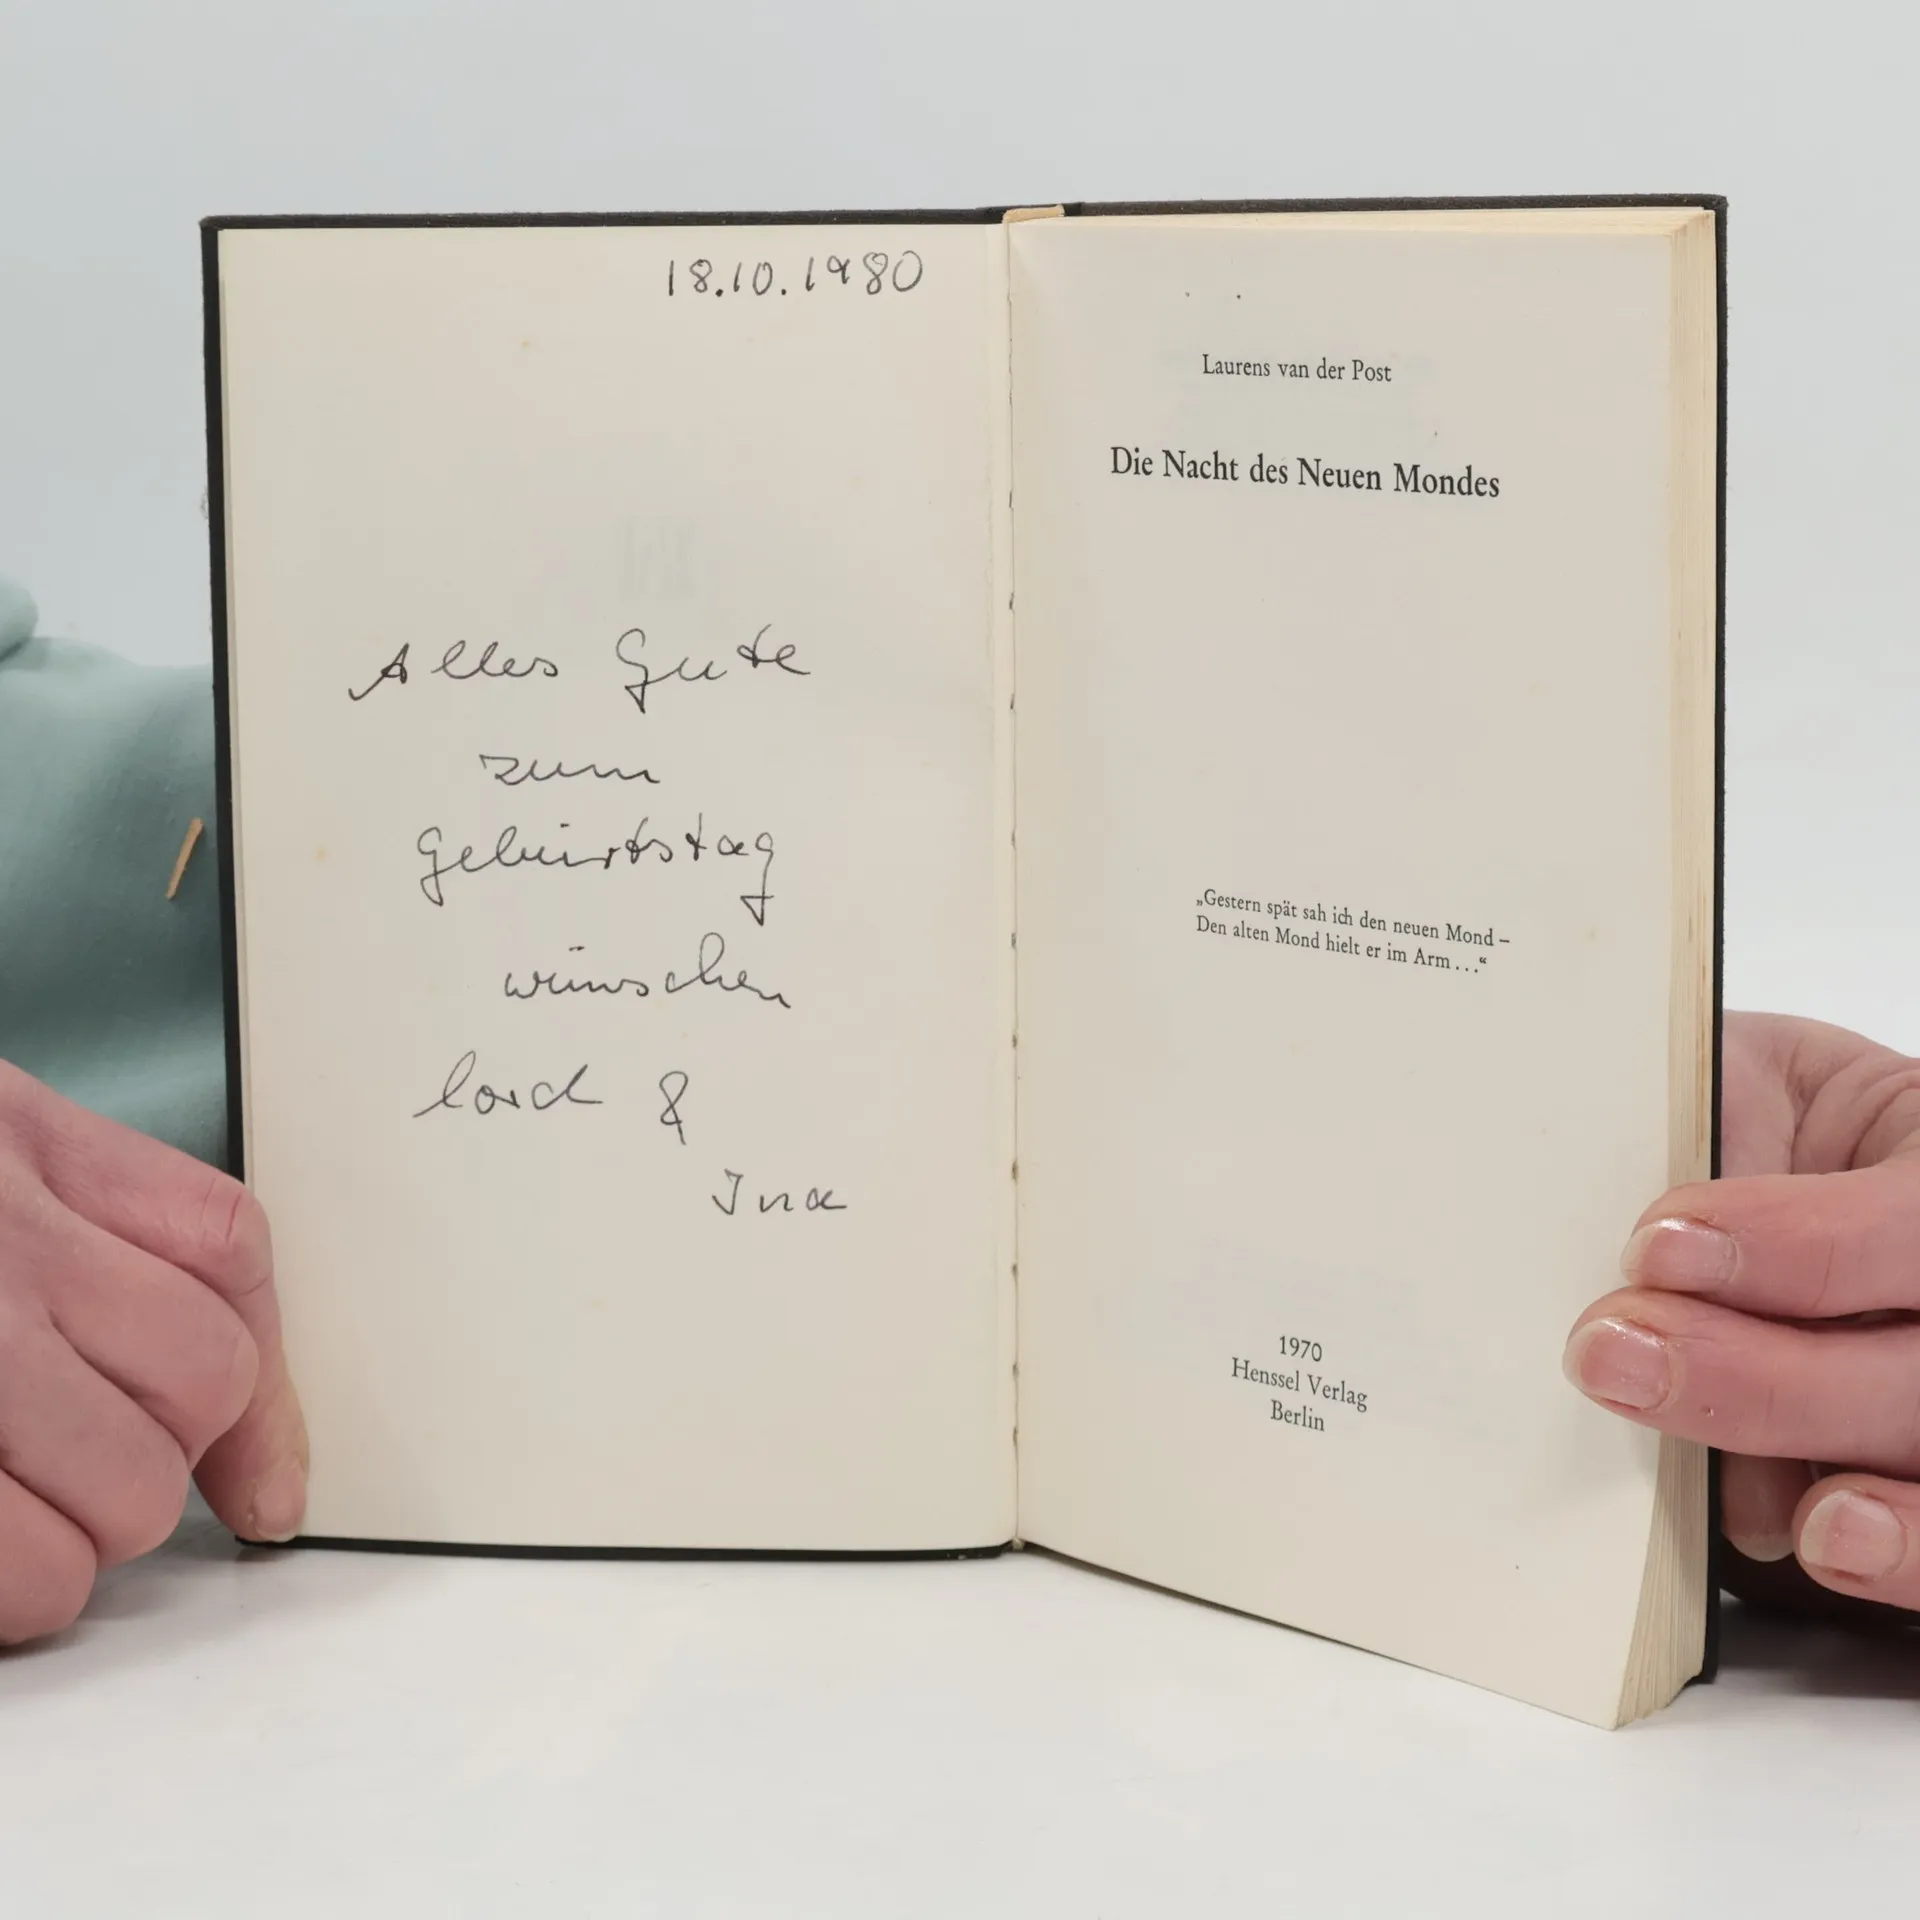 18.10.1980
Alles Gute
zum
Geburtstag
wünschen
&
Ina
Laurens van der Post
Die Nacht des Neuen Mondes
„Gestern spät sah ich den neuen Mond –
Den alten Mond hielt er im Arm . . .“
1970
Henssel Verlag
Berlin